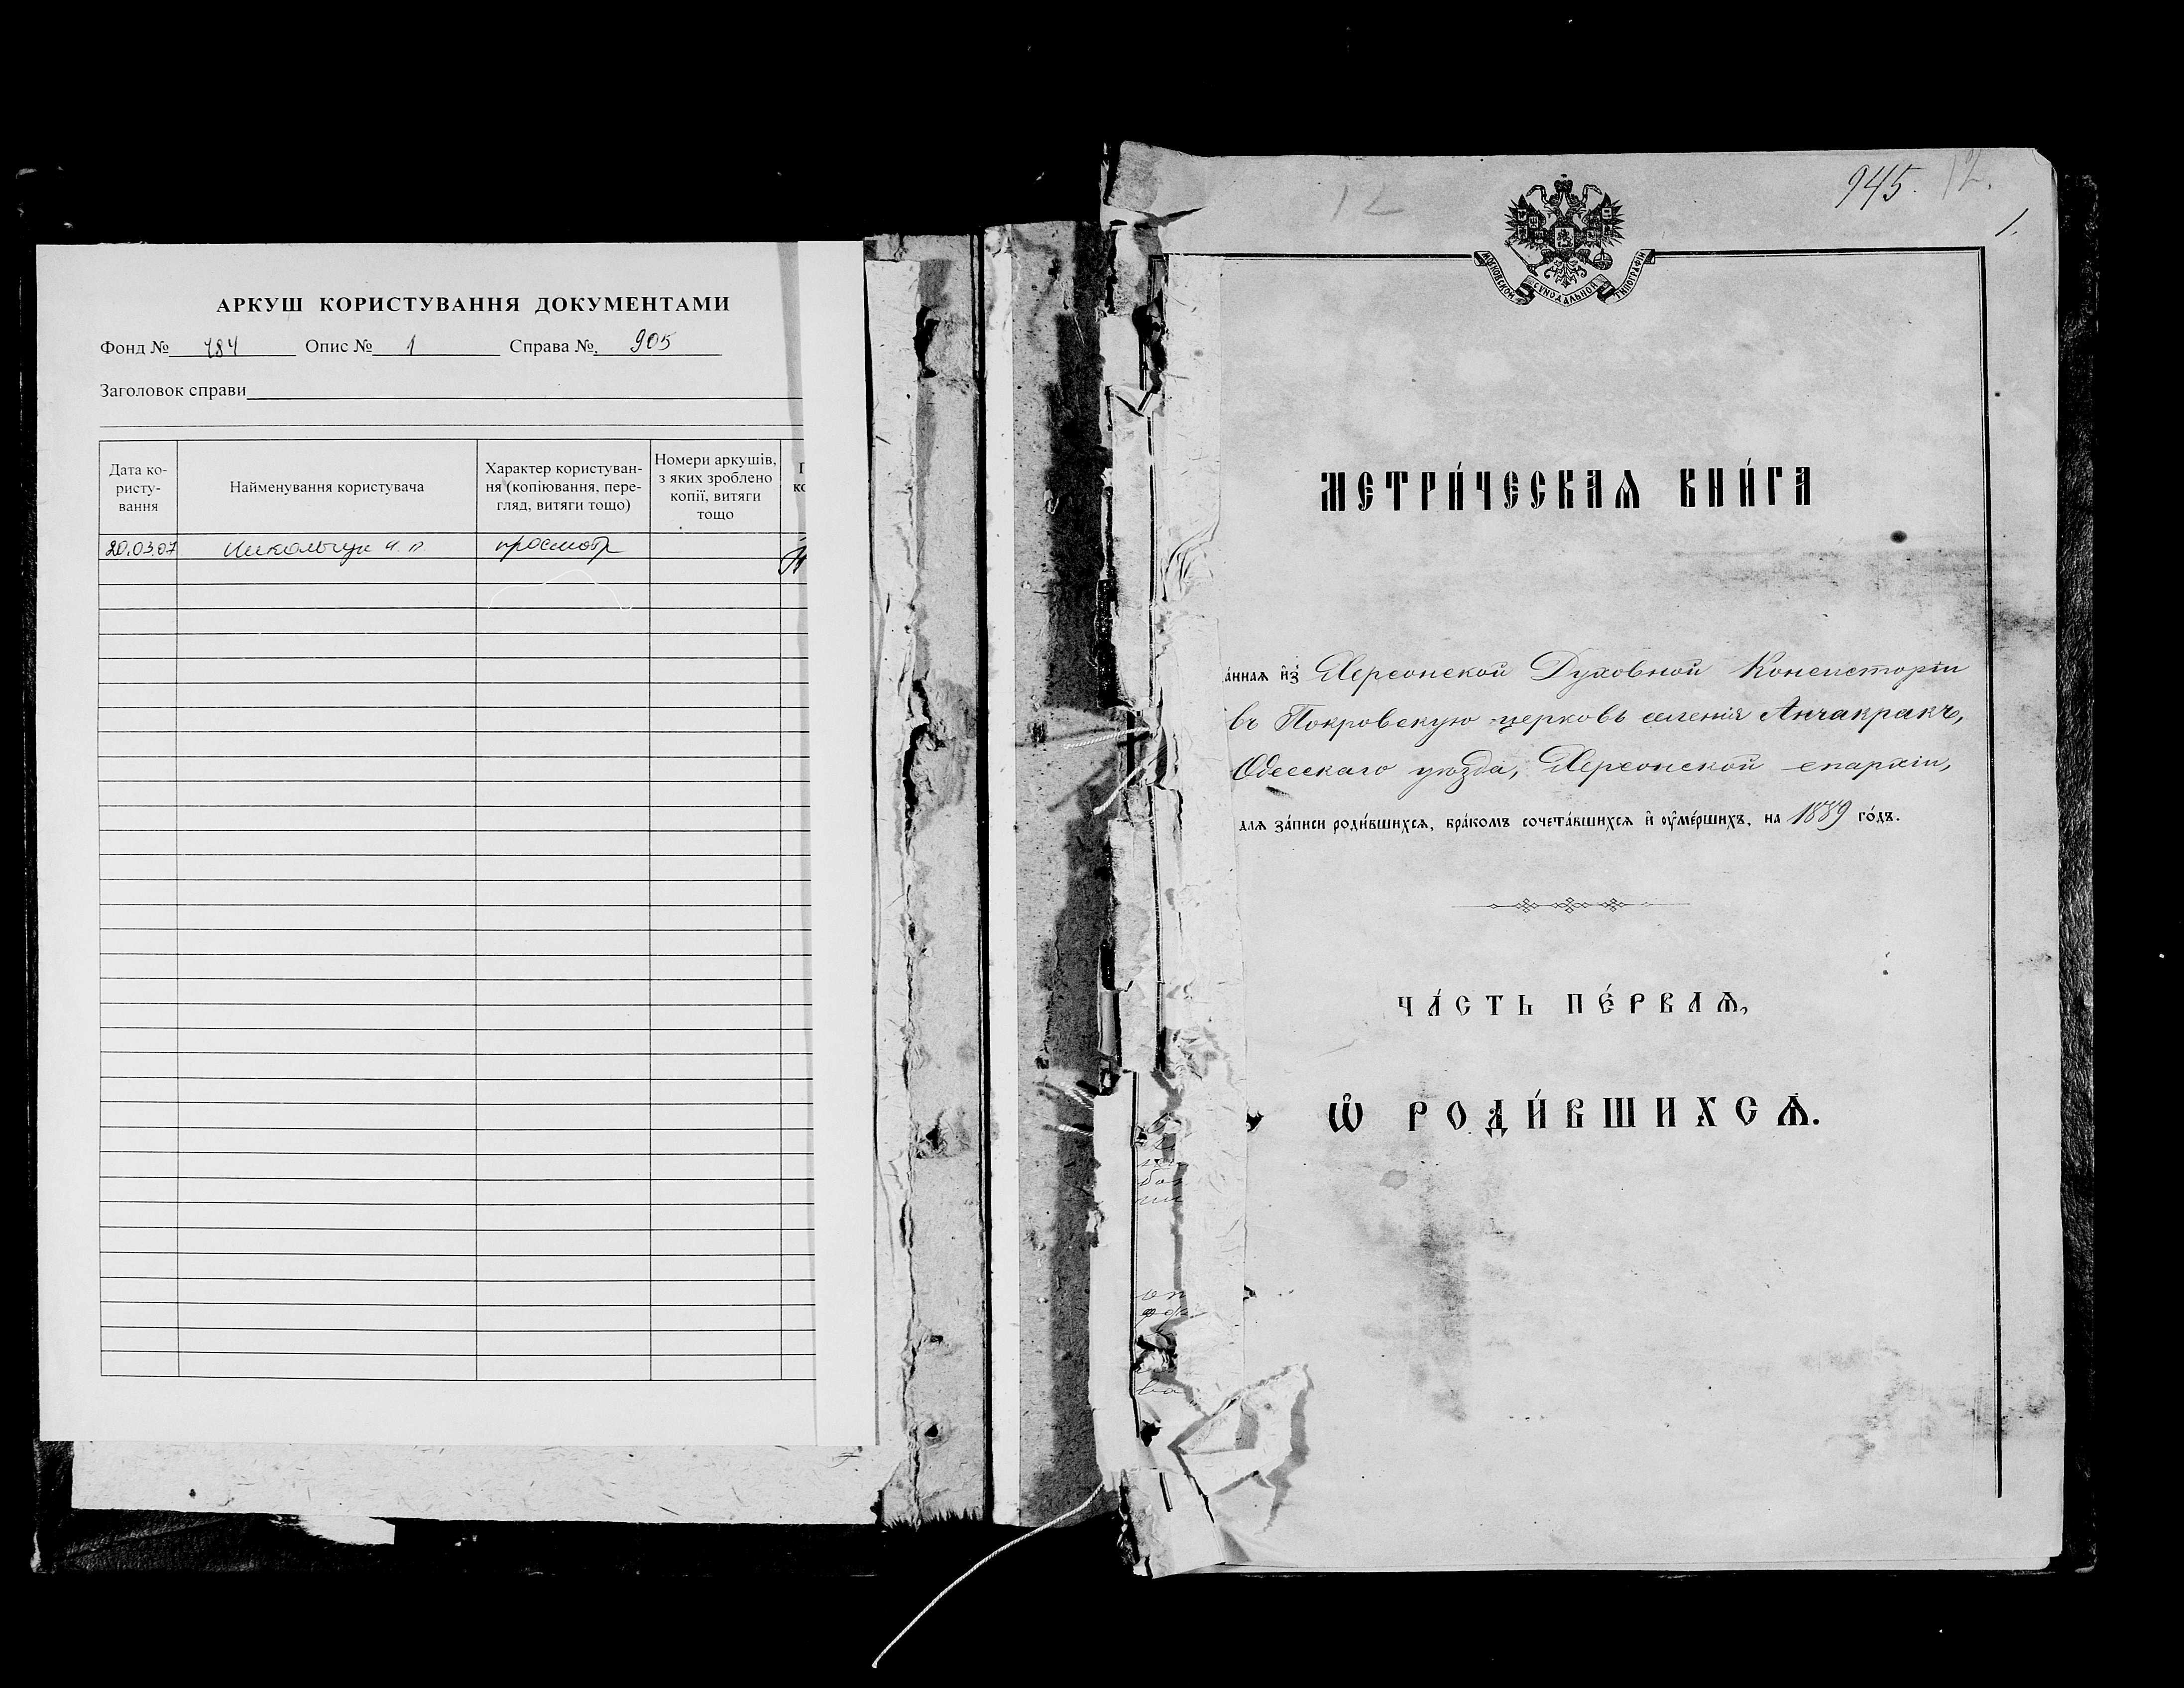 АРКУШ КОРИСТУВАННЯ ДОКУМЕНТАМИ
Фонд № 484 Опис № 1 Справа №. 905
Заголовок справи
Дата ко-
ристу-
вання
Найменування користувача
Характер користуван-
ня (копіювання, пере-
гляд, витяги тощо)
Номери аркушів,
з яких зроблено
копії, витяги
тощо
20.03.07 просмотр
12
945. 12.
1.
МОСКОВСКОЙ СѴНОДАЛЬНОЙ ТИПОГРАФІИ
МЕТРИ́ЧЕСКАѦ КНИ́ГА
а́ннаѧ и҆з̾ Херсонской Духовной Консисторіи
въ Покровскую церковь селенія Анчакракъ,
Одесскаго уѣзда, Херсонской епархіи,
длѧ за́писи роди́вшихсѧ, бра́комъ сочета́вшихсѧ и҆ ᲂу҆ме́ршихъ, на 1889 го́дъ.
ЧА́СТЬ ПЕ́РВАѦ,
Ѡ҆ РОДИ́ВШИХСѦ.